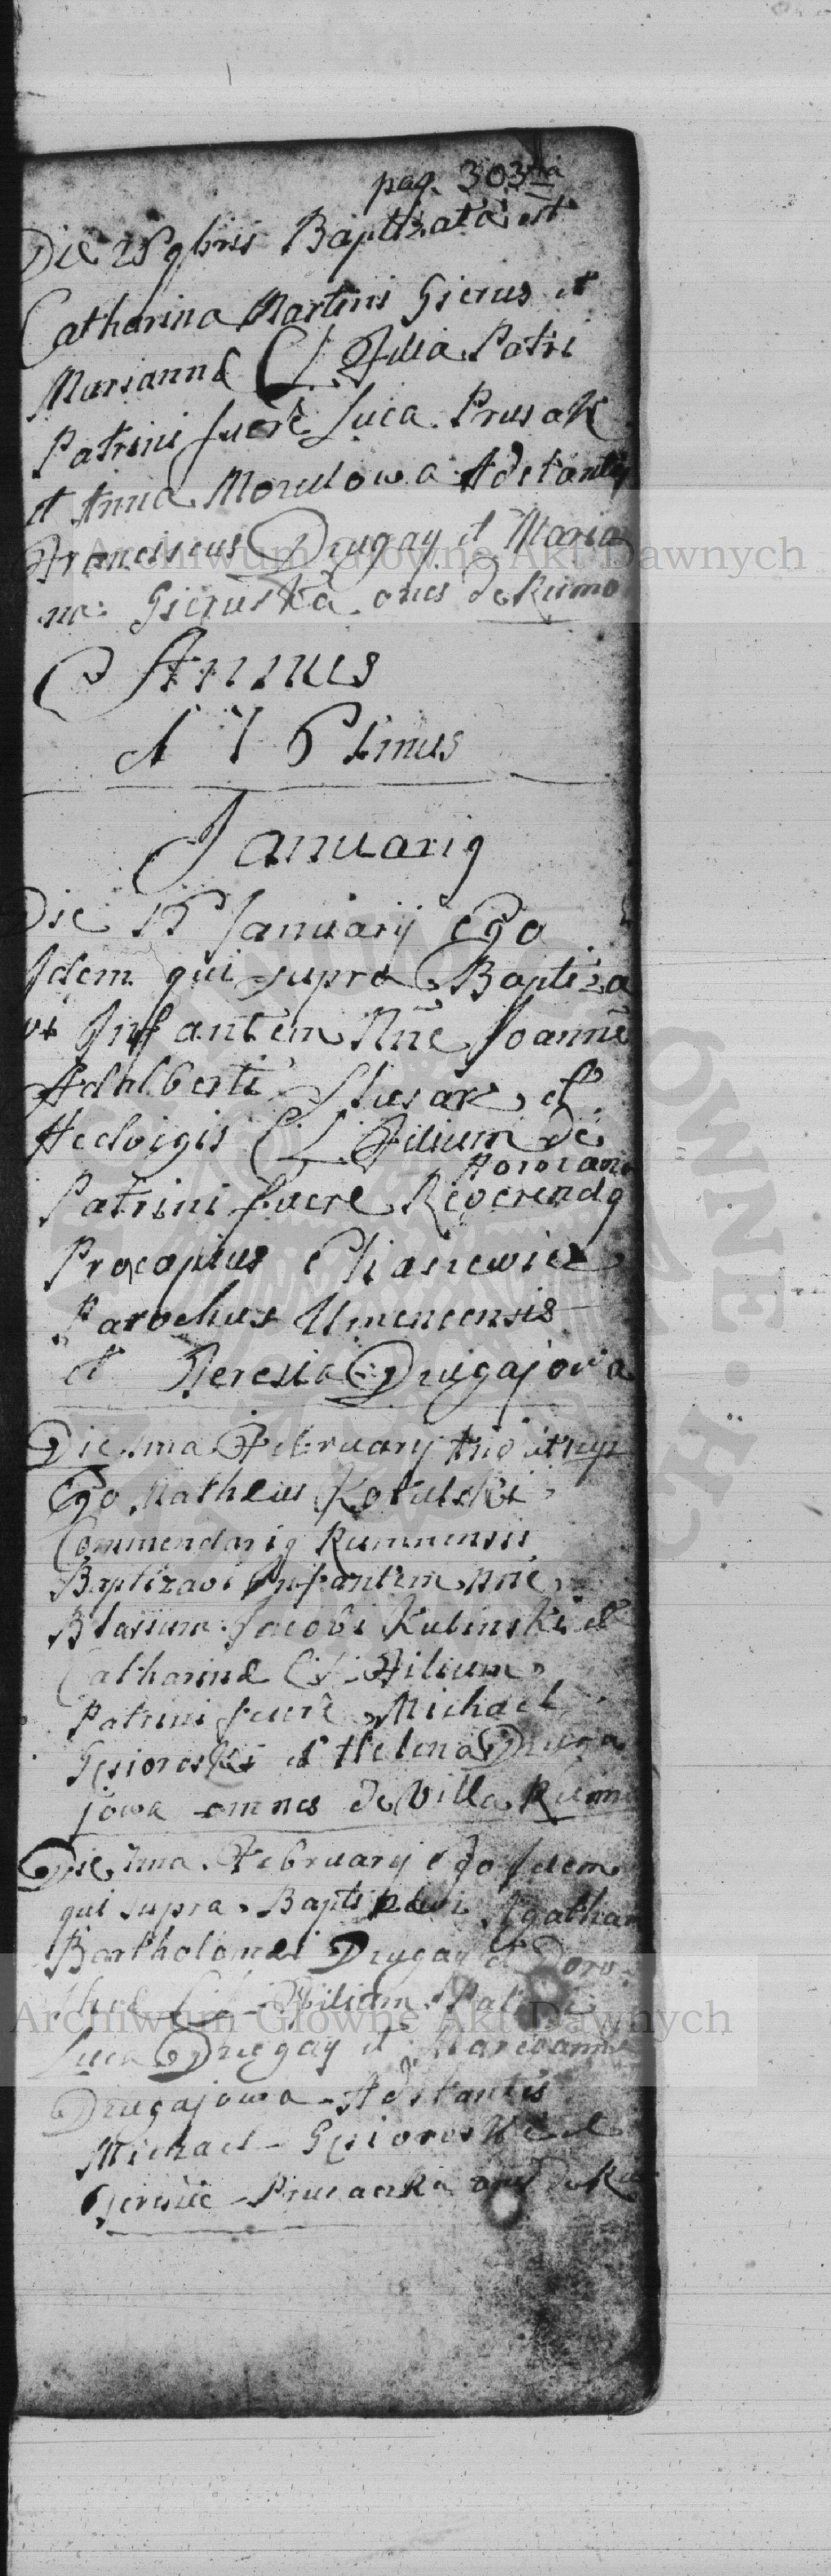 pag. 303tia
Die 25 9bris Baptizata est
Catharina Martini Gierus et
Mariannæ C. L. Filia Patri
Patrini fuere Luca Prusak
et Anna Morulowa Adstantes
Franciscus Drugay et Maria
na Gieruska oues de Rumno
Annus
1761mus
Januarig
Die 15 Januarij Ego
Idem qui supra Baptiza
vi Infantem Nne Joanne
Adalberti Slusarz et
Hedvigis C. L. Filium De
Patrini fuere Reverendg
Procopius Eliasiewicz
Parochus Umencensis
et Teresia Drugajova
Die 1ma February Ano ut sup
Ego Matheus Kotulski
Commendarig Rumnensis
Baptizavi Infantem Nne
Blasium Jacobi Kulinski et
Catharinæ C. L. Filium
Patrini fuere Michael
Gąsioroski et Helena Druga
jowa omnes de Villa Rumn
Die February ego Idem
qui supra Baptizavi Agatham
Bartholomæi Drugay et Doro
theæ C. L. Filiam
Luca Drugay et Marianna
Drugajowa Adstantes
Michael Gąsioroski et
Teresia Prusaczka
Archiwum Główne Akt Dawnych
Archiwum Główne Akt Dawnych